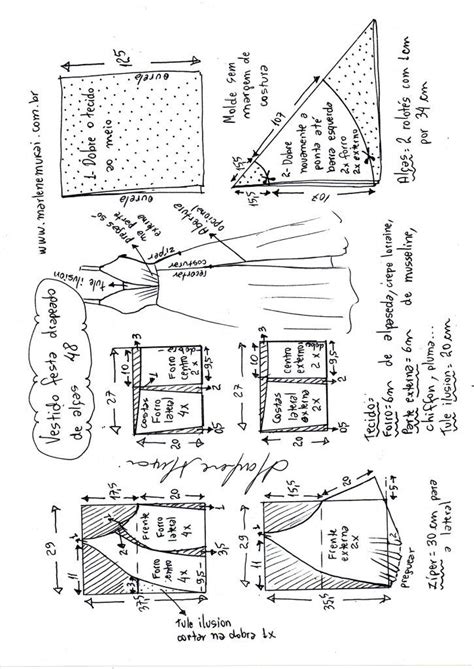 Vestido festa drapeado
de alças 48
www.marlenemukai.com.br
125
ourela
1- Dobre o tecido
ao meio
ourela
Molde sem
margem de
costura
107
15,5
15,5
2- Dobre
novamente a
ponta até
barra esquerda
2x forro
2x externo
107
Alças: 2 rolotês com 1cm
por 34 cm
tule ilusion
na parte
externa
zíper
costurar
recortar
Abertura
opcional
29
17,5
11
20
2
3
37,5
Frente
Forro
lateral
4x
Forro
centro
4x
3,5
9,5
tule ilusion
cortar 1x na dobra
27
10
3
1
Costas
Forro
lateral
4x
Forro
centro
2x
dobra
9,5
2
20
0,5
Marlene Mukai
29
15,5
11
20
35,5
Frente
externa
2x
5
preguear
27
10
3
Costas
lateral
externa
2x
Centro
externo
2x
dobra
9,5
2
20
0,5
Tecido:
Forro=6m de alpaseda, crepe lorraine,
Parte externa=6m de musseline,
chiffon, pluma...
Tule ilusion= 20 cm
zíper = 30 cm para
a lateral